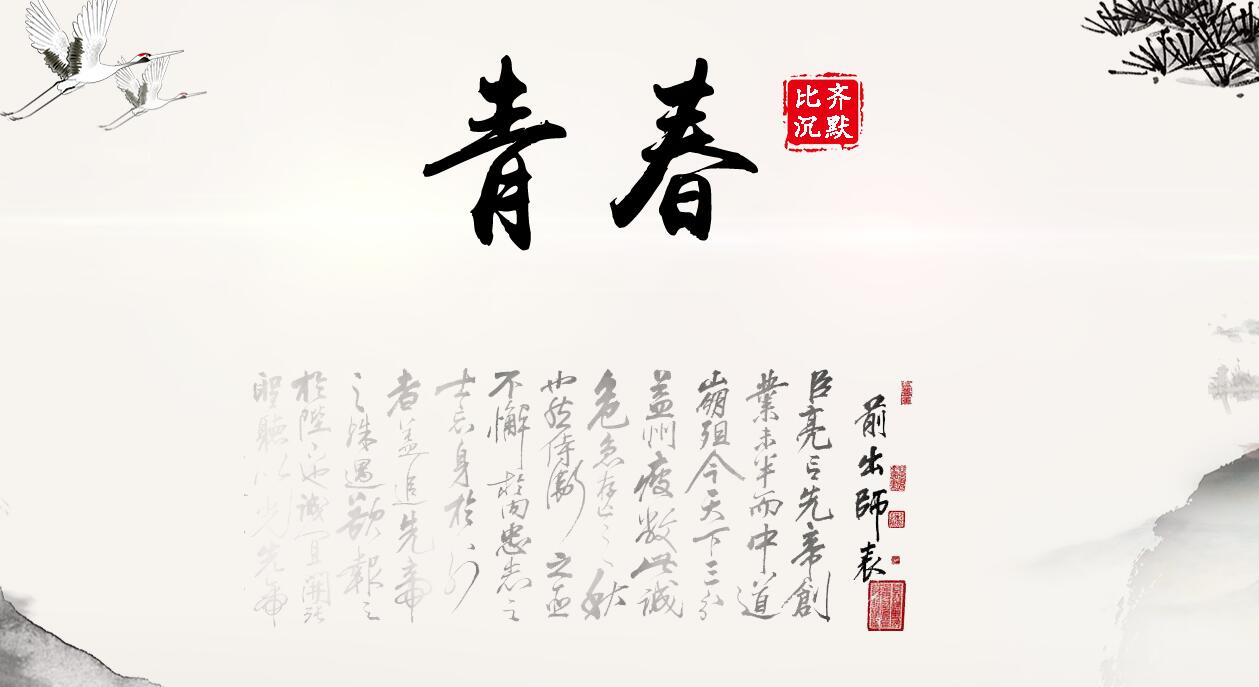 青春
比齐
沉默
前出師表
臣亮言先帝創
業未半而中道
崩殂今天下三分
益州疲敝此誠
危急存亡之秋
也然侍衛之臣
不懈於内忠志之
士忘身於外
者蓋追先帝
之殊遇欲報之
於陛下也誠宜開張
聖聽以光先帝